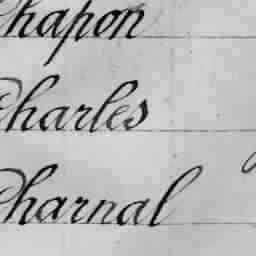 Chapon
Charles
Charnal